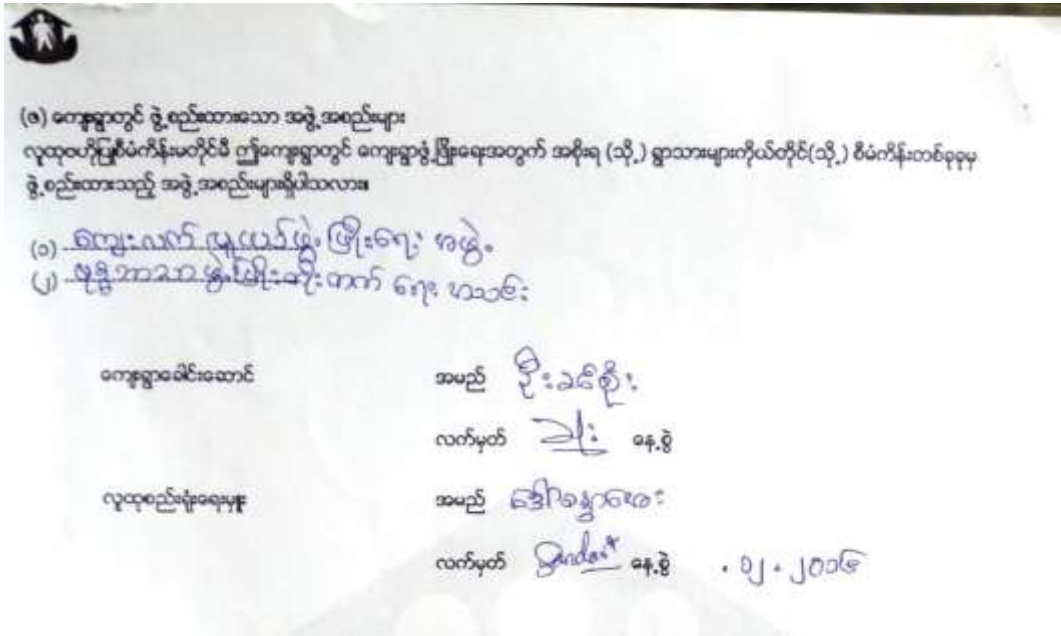 (ဇ) ကျေးရွာတွင် ဖွဲ့စည်းထားသော အဖွဲ့အစည်းများ
လူထုဗဟိုပြုစီမံကိန်းမတိုင်မီ ဤကျေးရွာတွင် ကျေးရွာဖွံ့ဖြိုးရေးအတွက် အစိုးရ (သို့) ရွာသားများကိုယ်တိုင်(သို့) စီမံကိန်းတစ်ခုခုမှ
ဖွဲ့စည်းထားသည့် အဖွဲ့အစည်းများရှိပါသလား။
(၁) ကျေးလက် လူငယ်ဖွံ့ဖြိုးရေး အဖွဲ့
(၂) ဗုဒ္ဓဘာသာ ဖွံ့ဖြိုးတိုးတက် ရေး အသင်း
ကျေးရွာခေါင်းဆောင် အမည် ဦးခင်စိုး
လက်မှတ် နေ့စွဲ
လူထုစည်းရုံးရေးမှူး အမည် ဒေါ်စန္ဒာအေး
လက်မှတ် Sandar နေ့စွဲ . ၁၂ . ၂၀၁၆